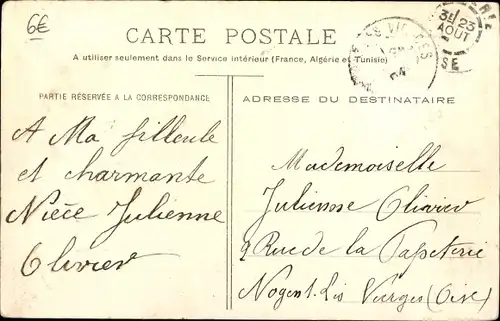 6€
CARTE POSTALE
A utiliser seulement dans le Service intérieur (France, Algérie et Tunisie)
3E / 23
AOUT
SE
PARTIE RÉSERVÉE A LA CORRESPONDANCE
ADRESSE DU DESTINATAIRE
A Ma filleule
et charmante
Nièce Julienne
Olivier
Mademoiselle
Julienne Olivier
2 Rue de la Papeterie
Nogent. Les Vierges (Oise)